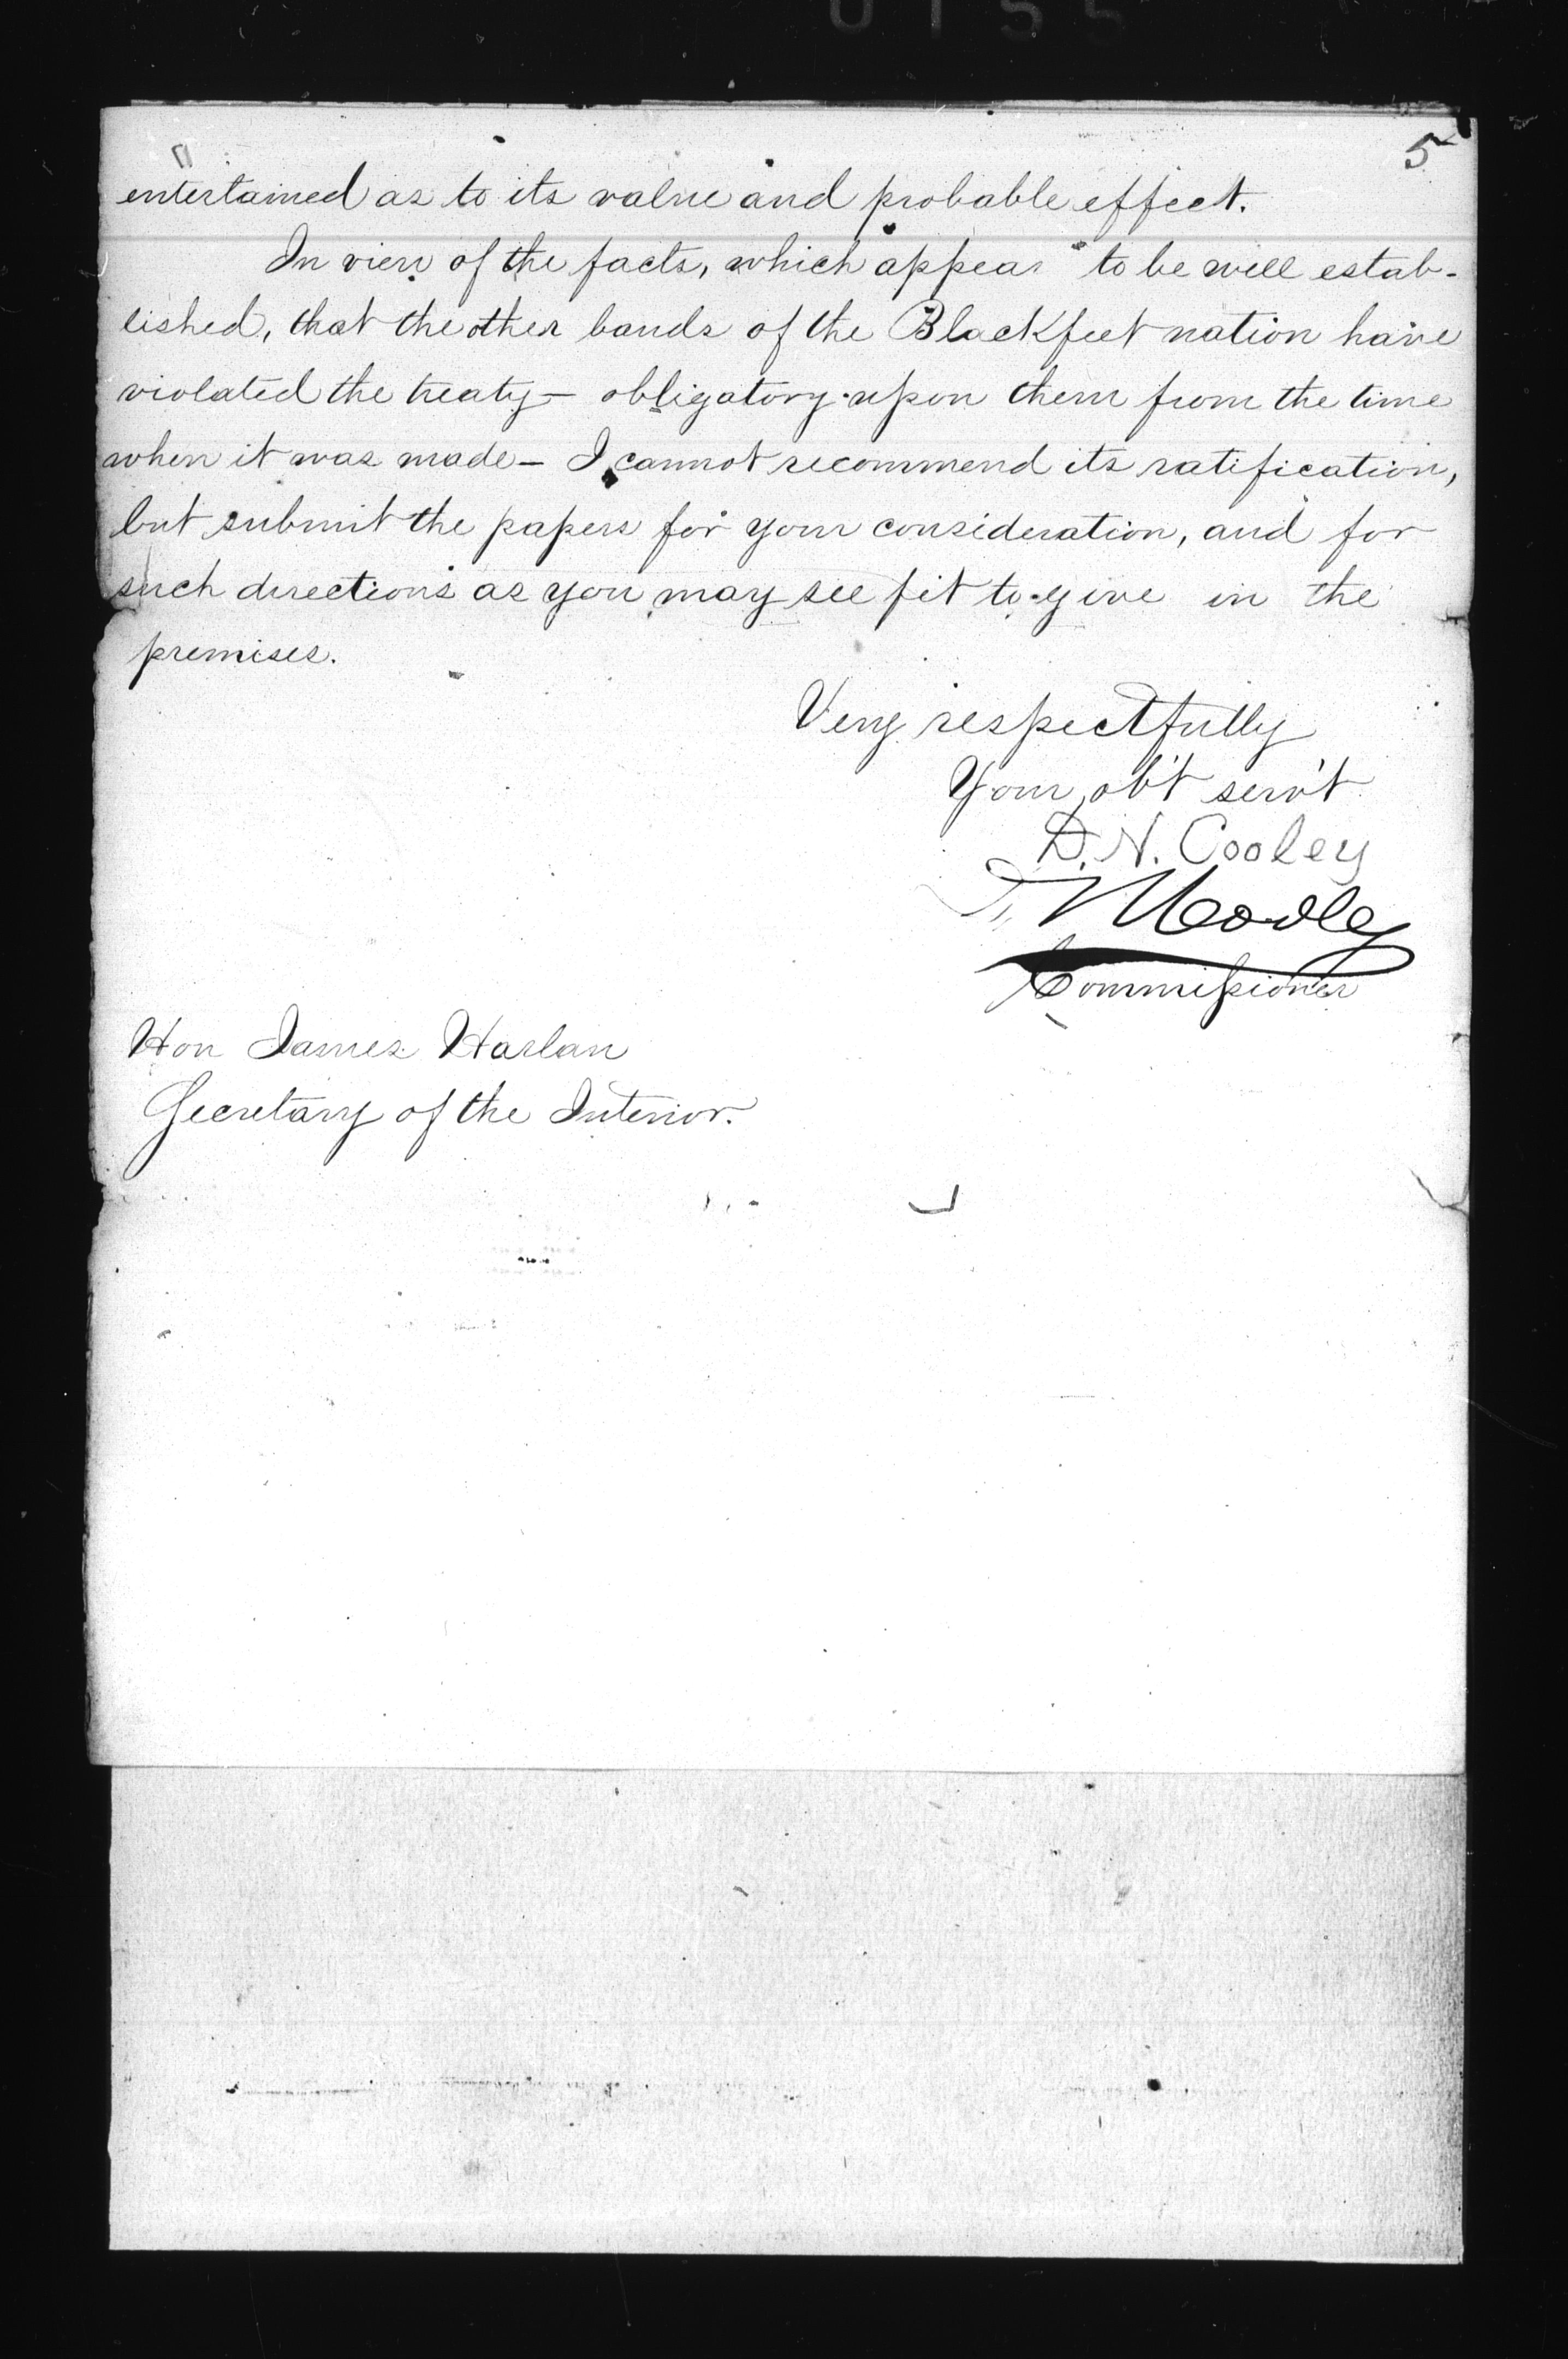 0155
5
entertained as to its value and probable effect.
In view of the facts, which appear to be well estab-
lished, that the other bands of the Blackfeet nation have
violated the treaty - obligatory upon them from the time
when it was made - I cannot recommend its ratification,
but submit the papers for your consideration, and for
such directions as you may see fit to give in the
premises.
Very respectfully
Your ob't serv't
D. N. Cooley
D N Cooley
Commissioner
Hon James Harlan
Secretary of the Interior.